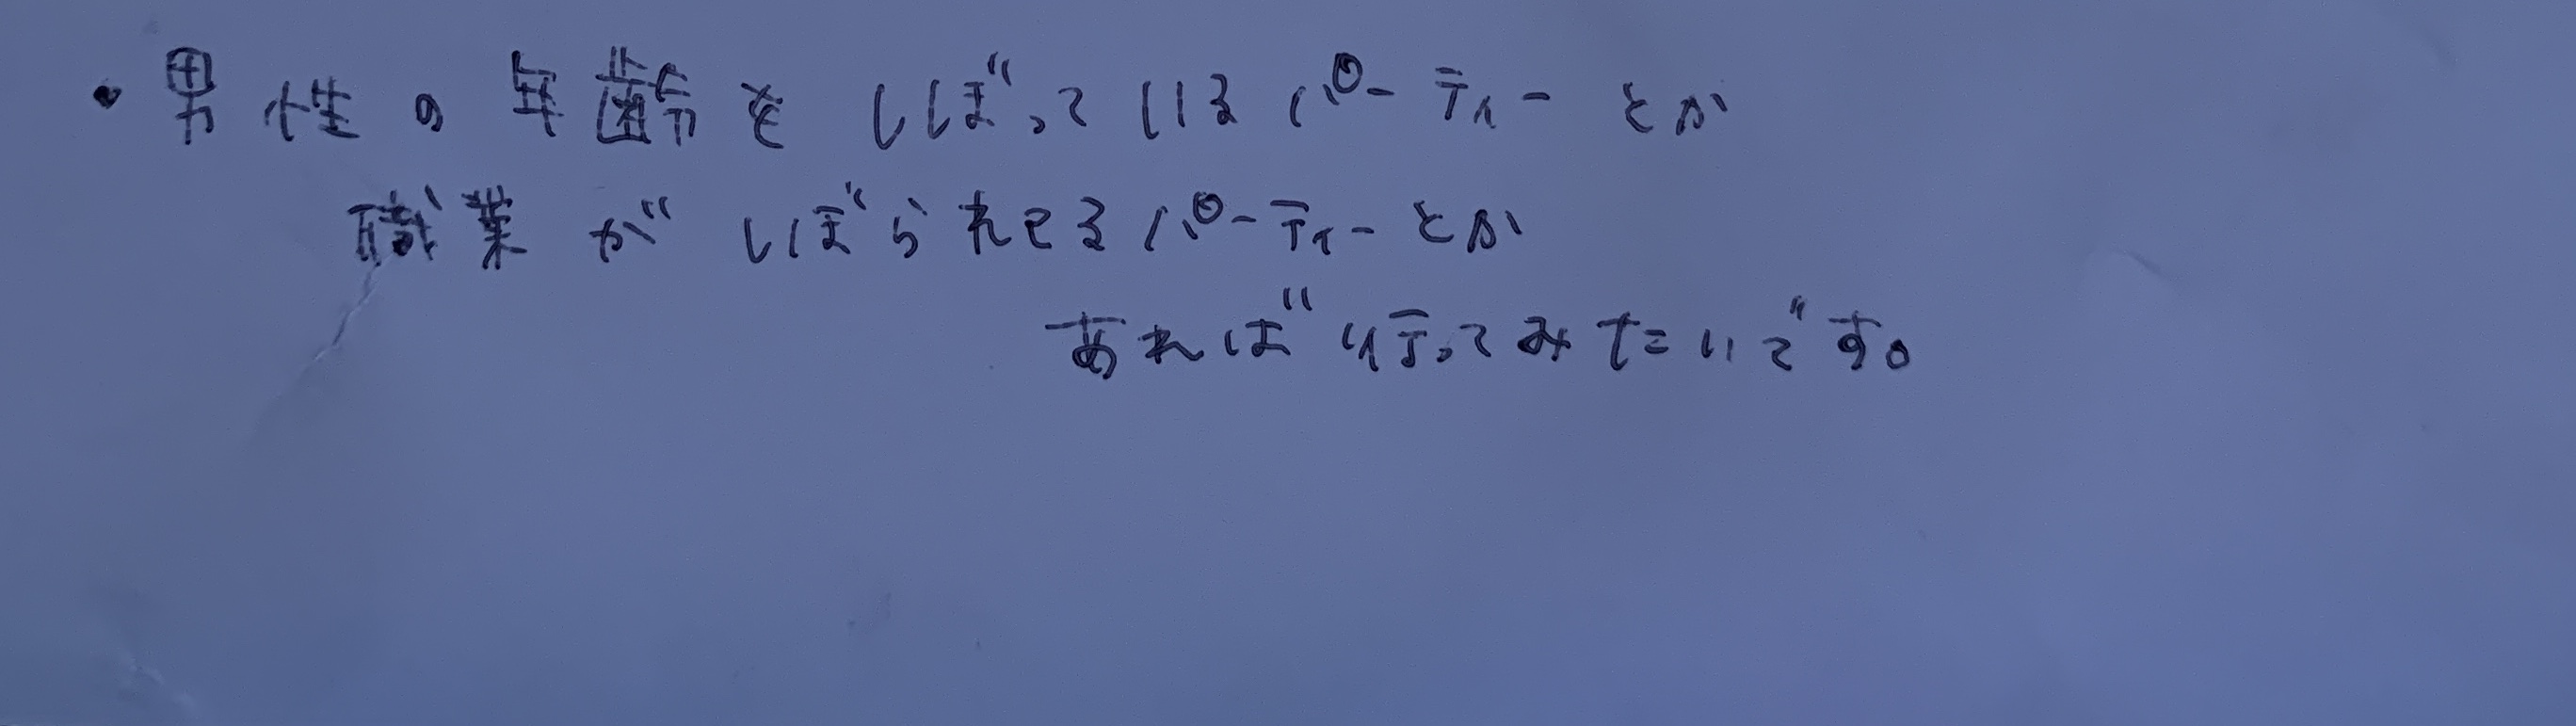 ・男性の年齢をしぼっているパーティーとか
職業がしぼられてるパーティーとか
あれば行ってみたいです。